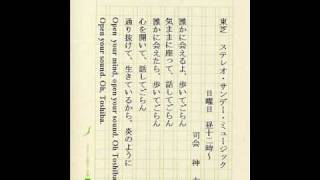 東芝 ステレオ・サンデー・ミュージック
日曜日 昼十二時~
司会 神
誰かに会えるよ、歩いてごらん
気ままに座って、話してごらん
誰かに会えたら、歩いてごらん
心を開いて、話してごらん
通り抜けて、生きているから、炎のように
Open your mind, open your sound. Oh Toshiba.
Open your sound. Oh, Toshiba.